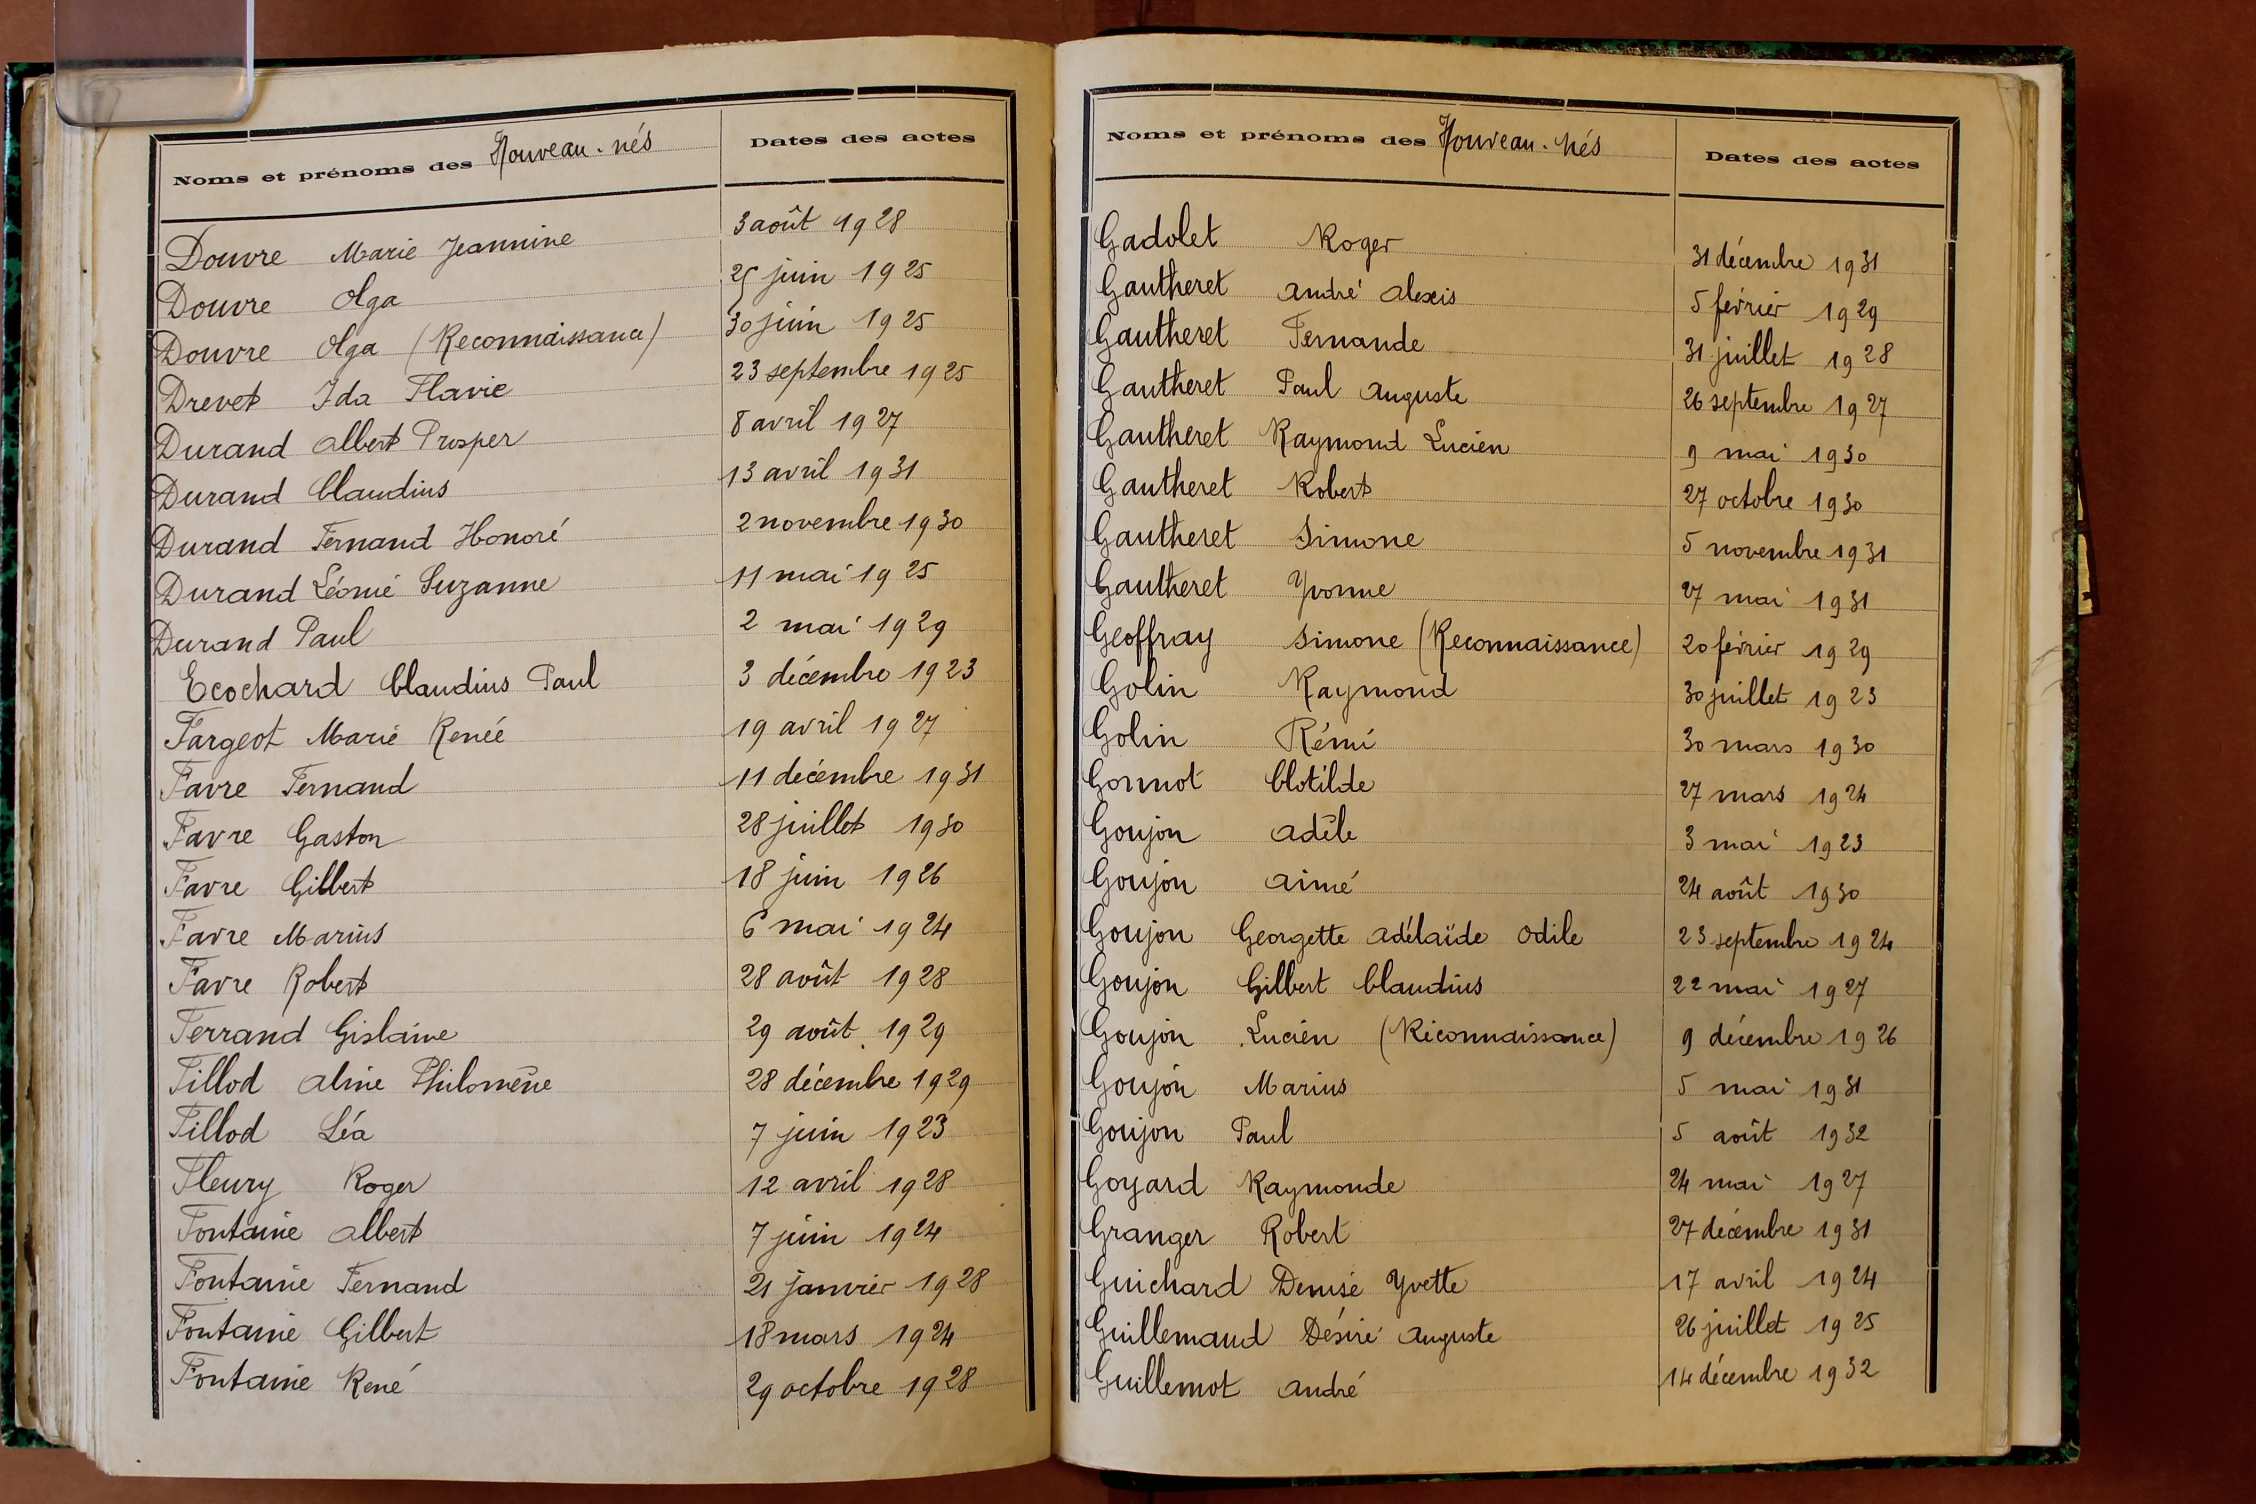 Noms et prénoms des Nouveau-nés Dates des actes
Douvre Marie Jeannine 3 août 1928
Douvre Olga 25 juin 1925
Douvre Olga (Reconnaissance) 30 juin 1925
Drevet Ida Flavie 23 septembre 1925
Durand Albert Prosper 8 avril 1927
Durand Claudius 13 avril 1931
Durand Fernand Honoré 2 novembre 1930
Durand Léonie Suzanne 11 mai 1925
Durand Paul 2 mai 1929
Ecochard Claudius Paul 3 décembre 1923
Fargeot Marie Renée 19 avril 1927
Favre Fernand 11 décembre 1931
Favre Gaston 28 juillet 1930
Favre Gilbert 18 juin 1926
Favre Marius 6 mai 1924
Favre Robert 28 août 1928
Ferrand Gislaine 29 août 1929
Fillod Aline Philomène 28 décembre 1929
Fillod Léa 7 juin 1923
Fleury Roger 12 avril 1928
Fontaine Albert 7 juin 1924
Fontaine Fernand 21 janvier 1928
Fontaine Gilbert 18 mars 1924
Fontaine René 29 octobre 1928
Noms et prénoms des Nouveau-nés Dates des actes
Gadolet Roger 31 décembre 1931
Gautheret André Alexis 5 février 1929
Gautheret Fernande 31 juillet 1928
Gautheret Paul Auguste 26 septembre 1927
Gautheret Raymond Lucien 9 mai 1930
Gautheret Robert 27 octobre 1930
Gautheret Simone 5 novembre 1931
Gautheret Yvonne 27 mai 1931
Geoffray Simone (Reconnaissance) 20 février 1929
Golin Raymond 30 juillet 1923
Golin Rémi 30 mars 1930
Gonnot Clotilde 27 mars 1924
Goujon Adèle 3 mai 1923
Goujon Aimé 24 août 1930
Goujon Georgette Adélaïde Odile 23 septembre 1924
Goujon Gilbert Claudius 22 mai 1927
Goujon Lucien (Reconnaissance) 9 décembre 1926
Goujon Marius 5 mai 1931
Goujon Paul 5 août 1932
Goyard Raymonde 24 mai 1927
Granger Robert 27 décembre 1931
Guichard Denise Yvette 17 avril 1924
Guillemaud Désiré Auguste 26 juillet 1925
Guillemot André 14 décembre 1932